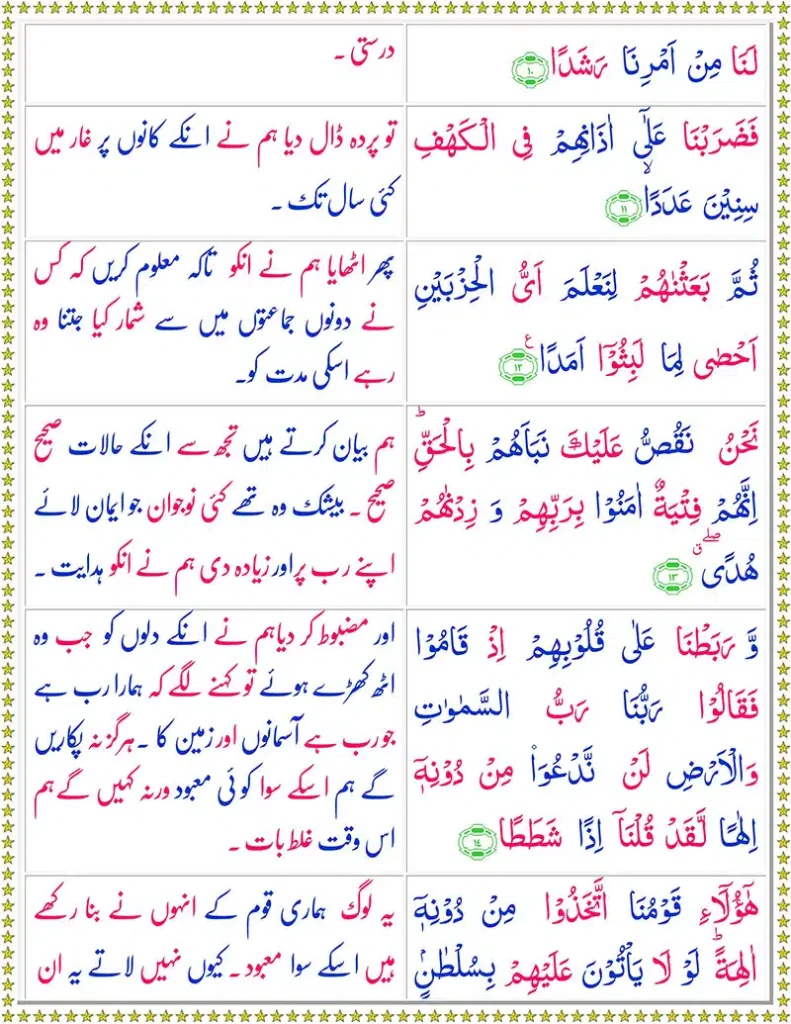 لَنَا مِنْ اَمْرِنَا رَشَدًا ١٠
درستی ۔
فَضَرَبْنَا عَلٰٓى اٰذَانِهِمْ فِى الْكَهْفِ
سِنِيْنَ عَدَدًا ۙ ١١
تو پردہ ڈال دیا ہم نے انکے کانوں پر غار میں
کئی سال تک ۔
ثُمَّ بَعَثْنٰهُمْ لِنَعْلَمَ اَىُّ الْحِزْبَيْنِ
اَحْصٰى لِمَا لَبِثُوْٓا اَمَدًا ع ١٢
پھر اٹھایا ہم نے انکو تاکہ معلوم کریں کہ کس
نے دونوں جماعتوں میں سے شمار کیا جتنا وہ
رہے اسکی مدت کو۔
نَحْنُ نَقُصُّ عَلَيْكَ نَبَاَهُمْ بِالْحَقِّ ؕ
اِنَّهُمْ فِتْيَةٌ اٰمَنُوْا بِرَبِّهِمْ وَ زِدْنٰهُمْ
هُدًى ۖ ق ١٣
ہم بیان کرتے ہیں تجھ سے انکے حالات صحیح
صحیح ۔ بیشک وہ تھے کئی نوجوان جو ایمان لائے
اپنے رب پر اور زیادہ دی ہم نے انکو ہدایت ۔
وَّ رَبَطْنَا عَلٰى قُلُوْبِهِمْ اِذْ قَامُوْا
فَقَالُوْا رَبُّنَا رَبُّ السَّمٰوٰتِ
وَالْاَرْضِ لَنْ نَّدْعُوَا۟ مِنْ دُوْنِهٖٓ
اِلٰهًـا لَّقَدْ قُلْنَاۤ اِذًا شَطَطًا ١٤
اور مضبوط کر دیا ہم نے انکے دلوں کو جب وہ
اٹھ کھڑے ہوئے تو کہنے لگے کہ ہمارا رب ہے
جو رب ہے آسمانوں اور زمین کا ۔ ہرگز نہ پکاریں
گے ہم اسکے سوا کوئی معبود ورنہ کہیں گے ہم
اس وقت غلط بات ۔
هٰٓؤُلَاۤءِ قَوْمُنَا اتَّخَذُوْا مِنْ دُوْنِهٖٓ
اٰلِهَةً ؕ لَوْ لَا يَاْتُوْنَ عَلَيْهِمْ بِسُلْطٰنٍۢ
یہ لوگ ہماری قوم کے انہوں نے بنا رکھے
ہیں اسکے سوا معبود ۔ کیوں نہیں لاتے یہ ان